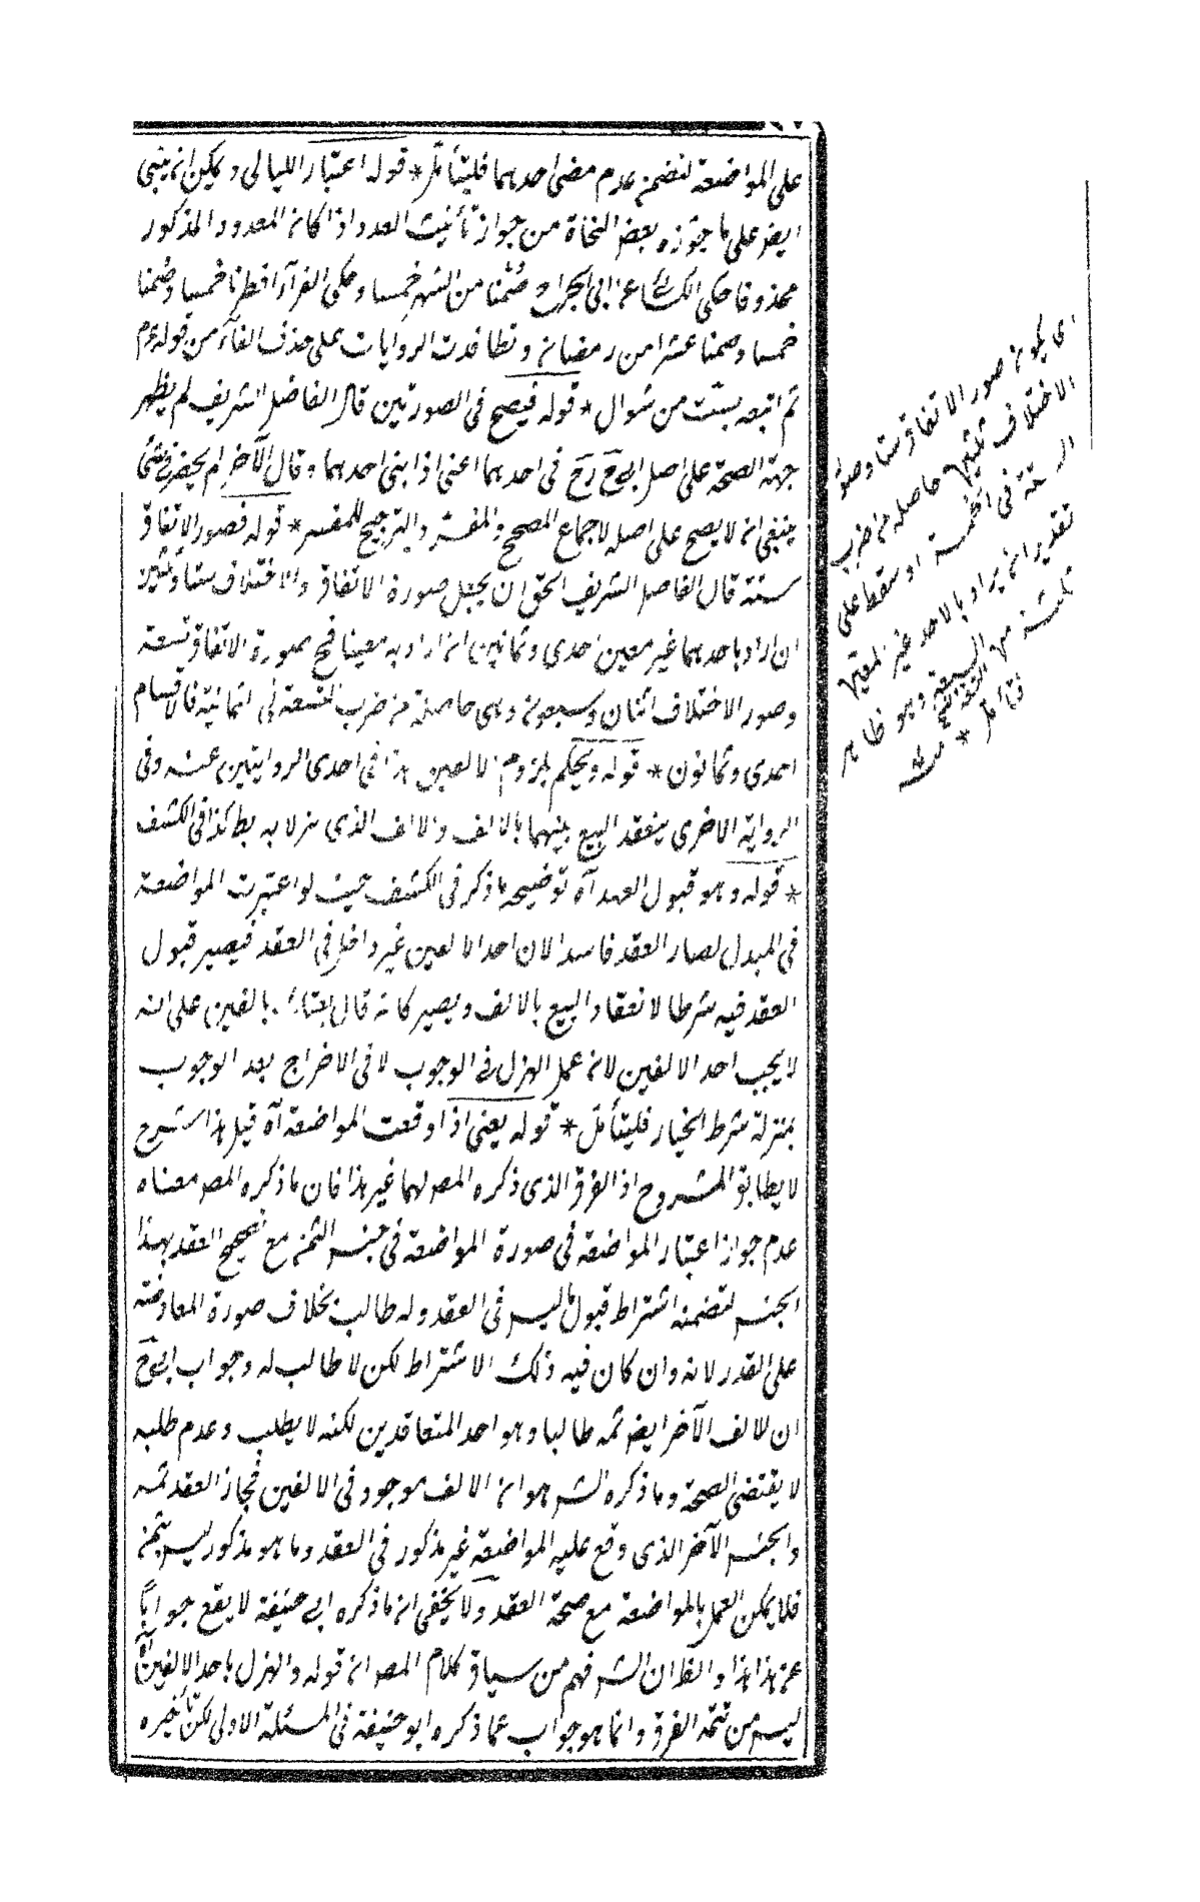 على المواضعة لتضمن عدم مضى احدهما فليتأمل * قوله اعتبار الليالى ويمكن ان يبنى
ايضا على ما جوزه بعض النحاة من جواز تأنيث العدد اذا كان المعدود المذكور
محذوفا حكى الكسائى عن ابى الجراح صمنا من الشهر خمسا وحكى الفرآء افطرنا خمسا وصمنا
خمسا وصمنا عشرا من رمضان وتظافرت الروايات على حذف التاء من قوله عم
ثم اتبعه بست من شوال * قوله فيصح فى الصورتين قال الفاضل الشريف لم يظهر
جهة الصحة على اصل ابى ح رح فى احدهما اعنى اذا بنى احدهما وقال الآخر لم يحضرنى شئ
فينبغى ان لا يصح على اصله لاجماع المصحح والمفسد والترجيح للمفسد * قوله فصور الاتفاق
ستة قال الفاضل الشريف الحق ان يجعل صورة الاتفاق والاختلاف ستا وثلثين
ان اراد باحدهما غير معين احدى وثمانين ان اراد به معينا فح صورة الاتفاق تسعة
وصور الاختلاف اثنان وسبعون وهى حاصلة من ضرب التسعة فى الثمانية فالاقسام
احدى وثمانون * قوله ويحكم بلزوم الالفين هذا فى احدى الروايتين عنه وفى
الرواية الاخرى ينعقد البيع بينهما بالالف والالف الذى هزلا به بط كذا فى الكشف
* قوله وهو قبول العهد آه توضيحه ما ذكر فى الكشف حيث لو اعتبرت المواضعة
فى المبدل لصار العقد فاسدا لان احد الالفين غير داخل فى العقد فيصير قبول
العقد فيه شرطا لانعقاد البيع بالالف ويصير كانه قال بعتك بالفين على انه
لا يجب احد الالفين لان عمل الهزل فى الوجوب لا فى الاخراج بعد الوجوب
بمنزلة شرط الخيار فليتأمل * قوله يعنى اذا وقعت المواضعة آه قيل هذا الشرح
لا يطابق المشروح اذ الفرق الذى ذكره المص لهما غير هذا فان ما ذكره المص معناه
عدم جواز اعتبار المواضعة فى صورة المواضعة فى جنس الثمن مع تصحيح العقد بهذا
الجنس لتضمنه اشتراط قبول ما ليس فى العقد وله طالب بخلاف صورة المعاوضة
على القدر لانه وان كان فيه ذلك الاشتراط لكن لا طالب له وجواب ابى ح
ان للالف الآخر ايضا ثمه طالبا وهو احد المتعاقدين لكنه لا يطلب وعدم طلبه
لا يقتضى الصحة وما ذكره الشر هو ان الالف موجود فى الالفين فجاز العقد ثمه
والجنس الآخر الذى وقع عليه المواضعة غير مذكور فى العقد وما هو مذكور ليس بثمن
فلا يمكن العمل بالمواضعة مع صحة العقد ولا يخفى ان ما ذكره ابى حنيفة لا يقع جوابا
عن هذا هذا والظ ان الشر فهم من سياق كلام المص ان قوله والهزل باحد الالفين آه
ليس من تتمة الفرق وانما هو جواب عما ذكره ابو حنيفة فى المسئلة الاولى لكن تأخيره
اى يكون صور الاتفاق ستا وصور
الاختلاف ثلثين حاصله من ضرب
الستة فى الخمسة او سقط على
تقدير ان يراد بالاحد غير المعين
ثلثة من السبعة وهو ظاهر
فتأمل * منه